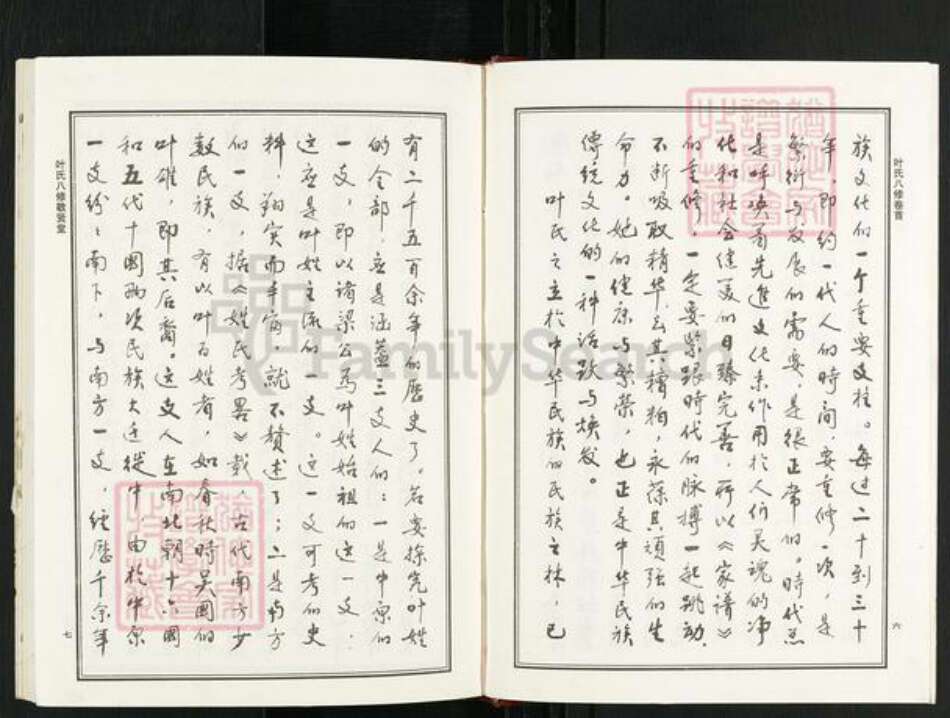 叶氏八修卷首
族文化的一个重要支柱。每过二十到三十
年，即约一代人的时间，要重修一次，是
繁衍与发展的需要，是很正常的。时代总
是呼唤着先进文化来作用於人们灵魂的净
化和社会健美的日臻完善，所以《家谱》
的重修，一定要紧跟時代的脉搏一起跳动，
不断吸取精华，去其糟粕，永葆其顽强的生
命力。她的健康与繁荣，也正是中华民族
傳統文化的一种活跃与焕发。
叶氏之立於中华民族的民族之林，已
六
有二千五百余年的歷史了。若要探究叶姓
的全部，应是涵蓋三支人的：一是中原的
一支，即以諸梁公为叶姓始祖的这一支；
这应是叶姓主流的一支。这一支可考的史
料，翔实而丰富，就不赘述了；二是南方
的一支，据《姓氏考畧》载，古代南方少
数民族，有以叶为姓者，如春秋時吴国的
叶雄，即其后裔。这支人在南北朝十六國
和五代十國两次民族大迁徙中由於中原
一支纷々南下，与南方一支，经歷千余年
叶氏八修敬贤堂
七
FamilySearch